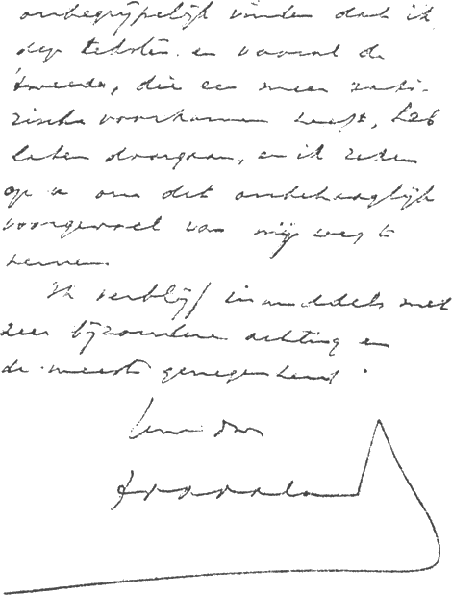 onbegrijpelijk vinden dat ik
deze teksten en vooral de
tweede, die een meer
voorkomen heeft, heb
laten doorgaan, en ik
op u om dit onbehaaglijk
voorgevoel van mij weg te
nemen.
Ik verblijf inmiddels met
zeer bijzondere achting en
de meeste genegenheid